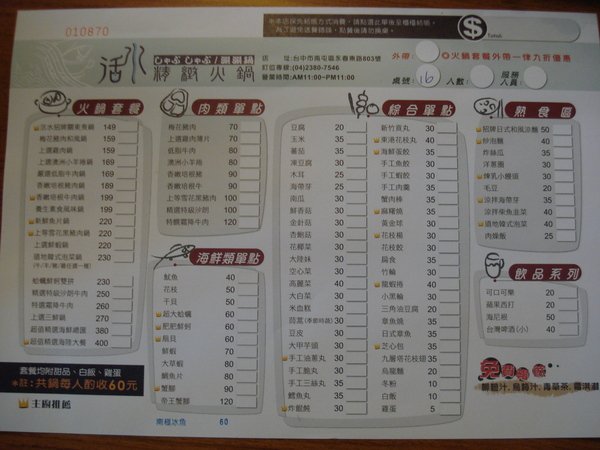 010870
※本店採先結帳方式消費，請點選此單後至櫃檯結帳，
為了避免送餐時誤，點餐後請勿換桌。
Total:
活水
しゃぶ しゃぶ / 涮涮鍋
精緻火鍋
店 址:台中市南屯區永春東路803號
訂位專線:(04)2380-7546
營業時間:AM11:00~PM11:00
外帶:
◎火鍋套餐外帶一律九折優惠
桌號: 16
人數:
服務人員:
火鍋套餐
活水招牌關東煮鍋 149
梅花豬肉和風鍋 159
上選雞肉鍋 159
上選澳洲小羊捲鍋 189
嚴選低脂牛肉鍋 189
香嫩培根豬肉鍋 189
香嫩培根牛肉鍋 199
養生素食風味鍋 199
新鮮魚片鍋 220
上等雪花黑豬肉鍋 220
上選鮮蝦鍋 220
道地韓式泡菜鍋 230
(牛/羊/豬/雞任選一種)
蛤蠣鮮蚵雙拼 230
精選特級沙朗牛肉 260
特選霜降牛肉 260
上選三鮮鍋 270
超值精選海鮮總匯 380
超值精選海陸大餐 400
套餐均附甜品、白飯、雞蛋
＊註:共鍋每人酌收60元
主廚推薦
肉類單點
梅花豬肉 70
上選雞肉薄片 70
低脂牛肉 80
澳洲小羊捲 80
香嫩培根豬 80
香嫩培根牛 90
上等雪花黑豬肉 100
精選特級沙朗 100
特選霜降牛肉 100
海鮮類單點
魷魚 40
花枝 50
干貝 50
超大蛤蠣 60
肥肥鮮蚵 60
扇貝 60
鮮蝦 60
大草蝦 80
鯛魚片 80
蟹腳 90
帝王蟹腳 120
南極冰魚 60
綜合單點
豆腐 20
玉米 35
蕃茄 35
凍豆腐 30
木耳 25
海帶芽 25
南瓜 30
鮮香菇 30
金針菇 30
杏鮑菇 30
花椰菜 30
大陸妹 30
空心菜 30
高麗菜 40
大白菜 30
米血糕 30
茼蒿(季節時蔬) 30
豆皮 30
大甲芋頭 30
手工油蔥丸 30
手工脆丸 30
手工三絲丸 35
鱈魚丸 35
炸餛飩 30
新竹貢丸 30
東港花枝丸 40
海鮮蛋餃 35
手工魚餃 30
手工蝦餃 30
手工肉羹 35
蟹肉棒 35
麻糬燒 35
黃金球 30
花枝楊 30
花枝餃 30
扁食 30
竹輪 30
龍蝦捲 40
小黑輪 30
三角油豆腐 20
章魚燒 35
日式章魚 35
芝心包 35
九層塔花枝捲 35
烏龍麵 20
冬粉 10
白飯 10
雞蛋 5
熟食區
招牌日式和風涼麵 50
炒泡麵 40
炸絲瓜 35
洋蔥圈 30
煉乳小饅頭 30
毛豆 20
涼拌海帶芽 30
涼拌柴魚韭菜 40
道地韓式泡菜 40
肉燥飯 25
飲品系列
可口可樂 20
蘋果西打 20
海尼根 50
台灣啤酒(小) 40